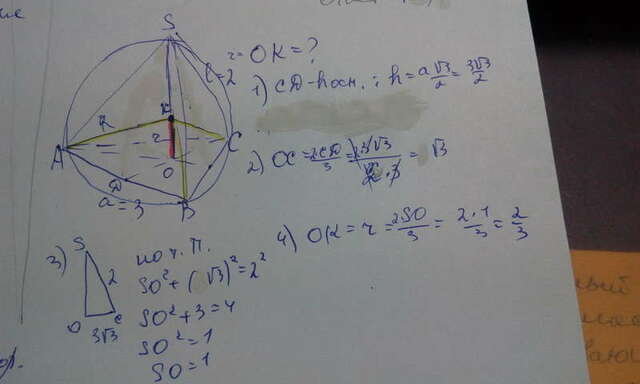 S
r = OK = ?
l = 2
1) CD - h осн. ; h = a√3/2 = 3√3/2
K
R
r
A
C
O
D
a = 3
B
2) OC = 2CD/3 = 2·3√3/2·3 = √3
3) S
2
O
C
3√3
по т. П.
SO² + (√3)² = 2²
SO² + 3 = 4
SO² = 1
SO = 1
4) OK = r = 2SO/3 = 2·1/3 = 2/3